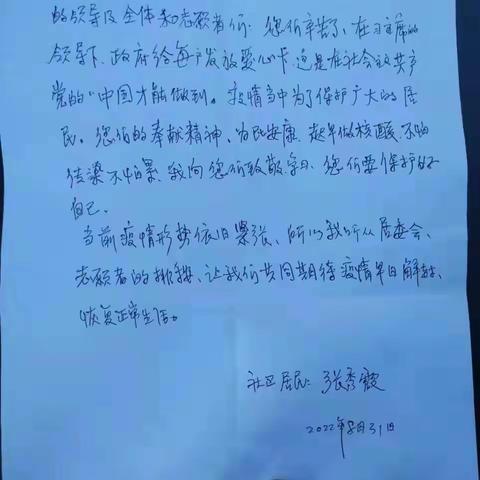 的领导及全体志愿者们：您们辛苦了，在习主席的
领导下、政府给每户发放爱心卡、这是在社会主义共产
党的"中国才能做到。疫情当中为了保护广大的居
民。您们的奉献精神、为民安康、起早做核酸、不怕
传染不怕累、我向您们致敬、您们要保护好
自己。
当前疫情形势依旧紧张、所以我听从居委会、
志愿者的排、让我们共同期待疫情早日解封、
恢复正常生活。
社区居民：张秀霞
2022年8月31日